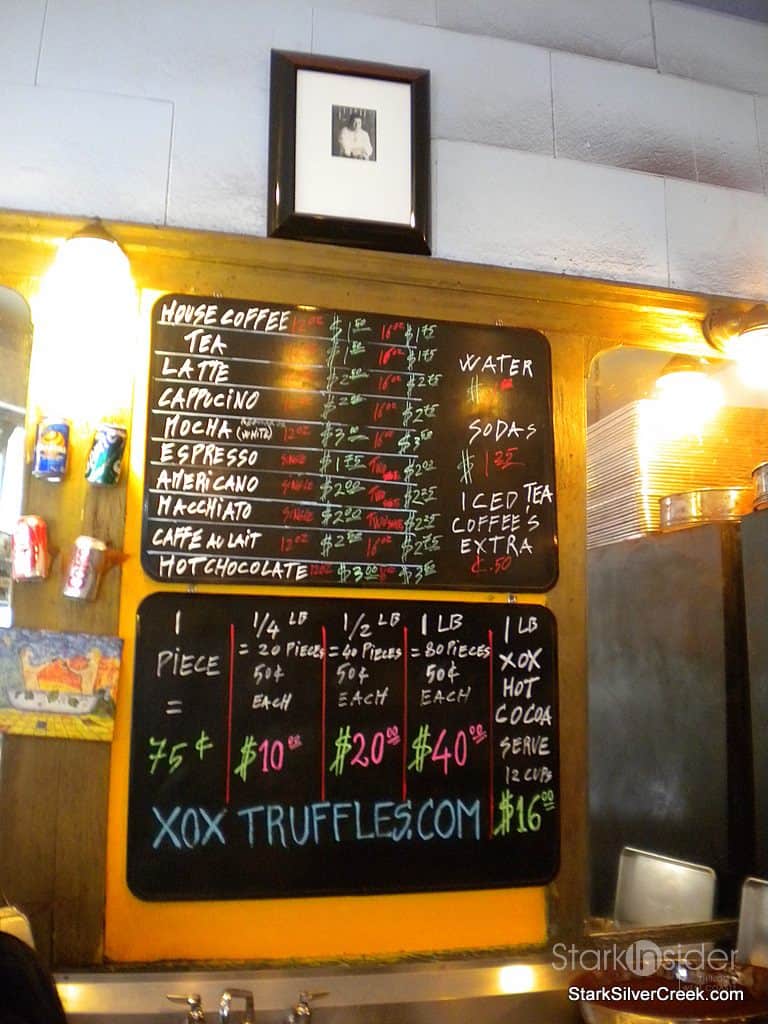 HOUSE COFFEE 12oz $1.50 16oz $1.75
TEA $1.50 16oz $1.75
LATTE $2 16oz $2.75
CAPPUCINO $2 16oz $2.75
MOCHA (WHITE) 12oz $3.00 16oz $3.50
ESPRESSO SINGLE $1.75 $2.00
AMERICANO SINGLE $2.00 $2.25
MACCHIATO SINGLE $2.00 $2.25
CAFFE AU LAIT 12oz $2 16oz $2.75
HOT CHOCOLATE 12oz $3.00 $3.50
WATER
$
SODAS
$ 1.25
ICED TEA
COFFEE'S
EXTRA
¢.50
1
PIECE
=
75¢
1/4 LB
= 20 PIECES
50¢
EACH
$10.00
1/2 LB
= 40 PIECES
50¢
EACH
$20.00
1 LB
= 80 PIECES
50¢
EACH
$40.00
1 LB
XOX
HOT
COCOA
SERVE
12 CUPS
$16.00
XOX TRUFFLES.COM
StarkInsider
StarkSilverCreek.com